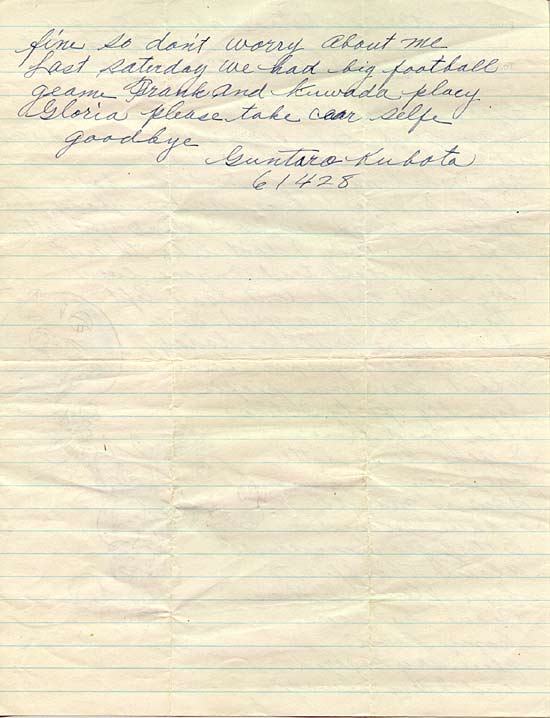 fine so don't worry about me
Last saterday we had big football
geame Frank and Kuwada placy
Gloria please take caar selfe
goodbye
Guntaro Kubota
61428